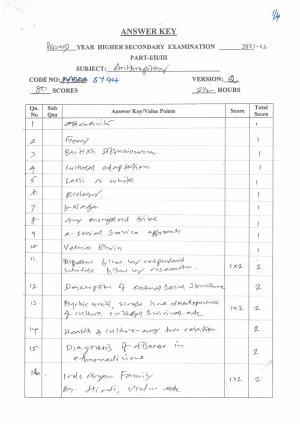 1/4
ANSWER KEY
Second YEAR HIGHER SECONDARY EXAMINATION 2021-22
PART-I/II/III
SUBJECT: Anthropology
CODE NO: 5744 VERSION: 2
80 SCORES 2½ HOURS
Qn. No Sub Qns Answer Key/Value Points Score Total Score
1 Objectivity 1
2 1
3 British Diffusionism 1
4 Cultural adaptation 1
5 Leslie A White 1
6 Ecology 1
7 1
8 Any endangered tribe 1
9 a social service 1
10 Verrier Elwin 1
11 filled by respondent
schedule filled by researcher 1x2 2
12 Description of 2
13 Psychic unity, single line development
of culture, survival, etc 1x2 2
14 Health & culture any two relation 2
15 Diagnosis of disease in
ethnomedicine 2
16 Indo Aryan Family
Eg. Hindi, Urdu etc 1x2 2